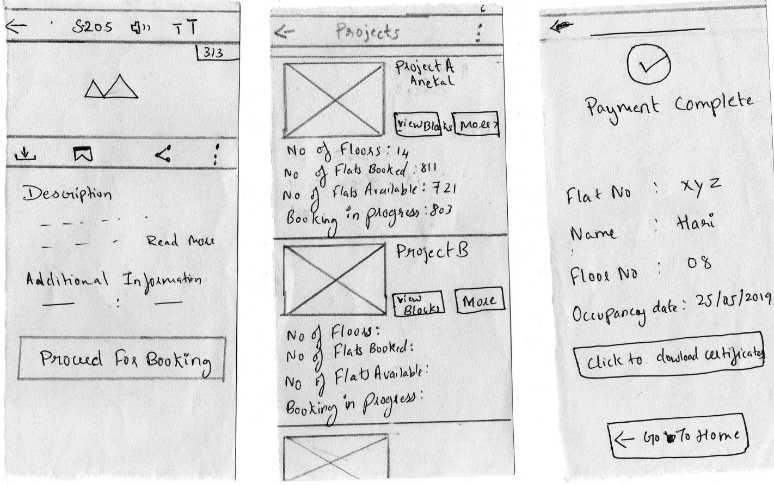 S205
TT
3/3
Description
Read More
Additional Information
:
Proceed For Booking
Projects
Project A
Anekal
View Blocks
More>
No of Floors: 14
No of Flats Booked: 811
No of Flats Available: 721
Booking in progress: 803
Project B
View
Blocks
More
No of Floors:
No of Flats Booked:
No of Flats Available:
Booking in Progress:
Payment Complete
Flat No : xyz
Name : Hari
Floor No : 08
Occupancy date: 25/05/2019
Click to dowload certificates
← Go To Home